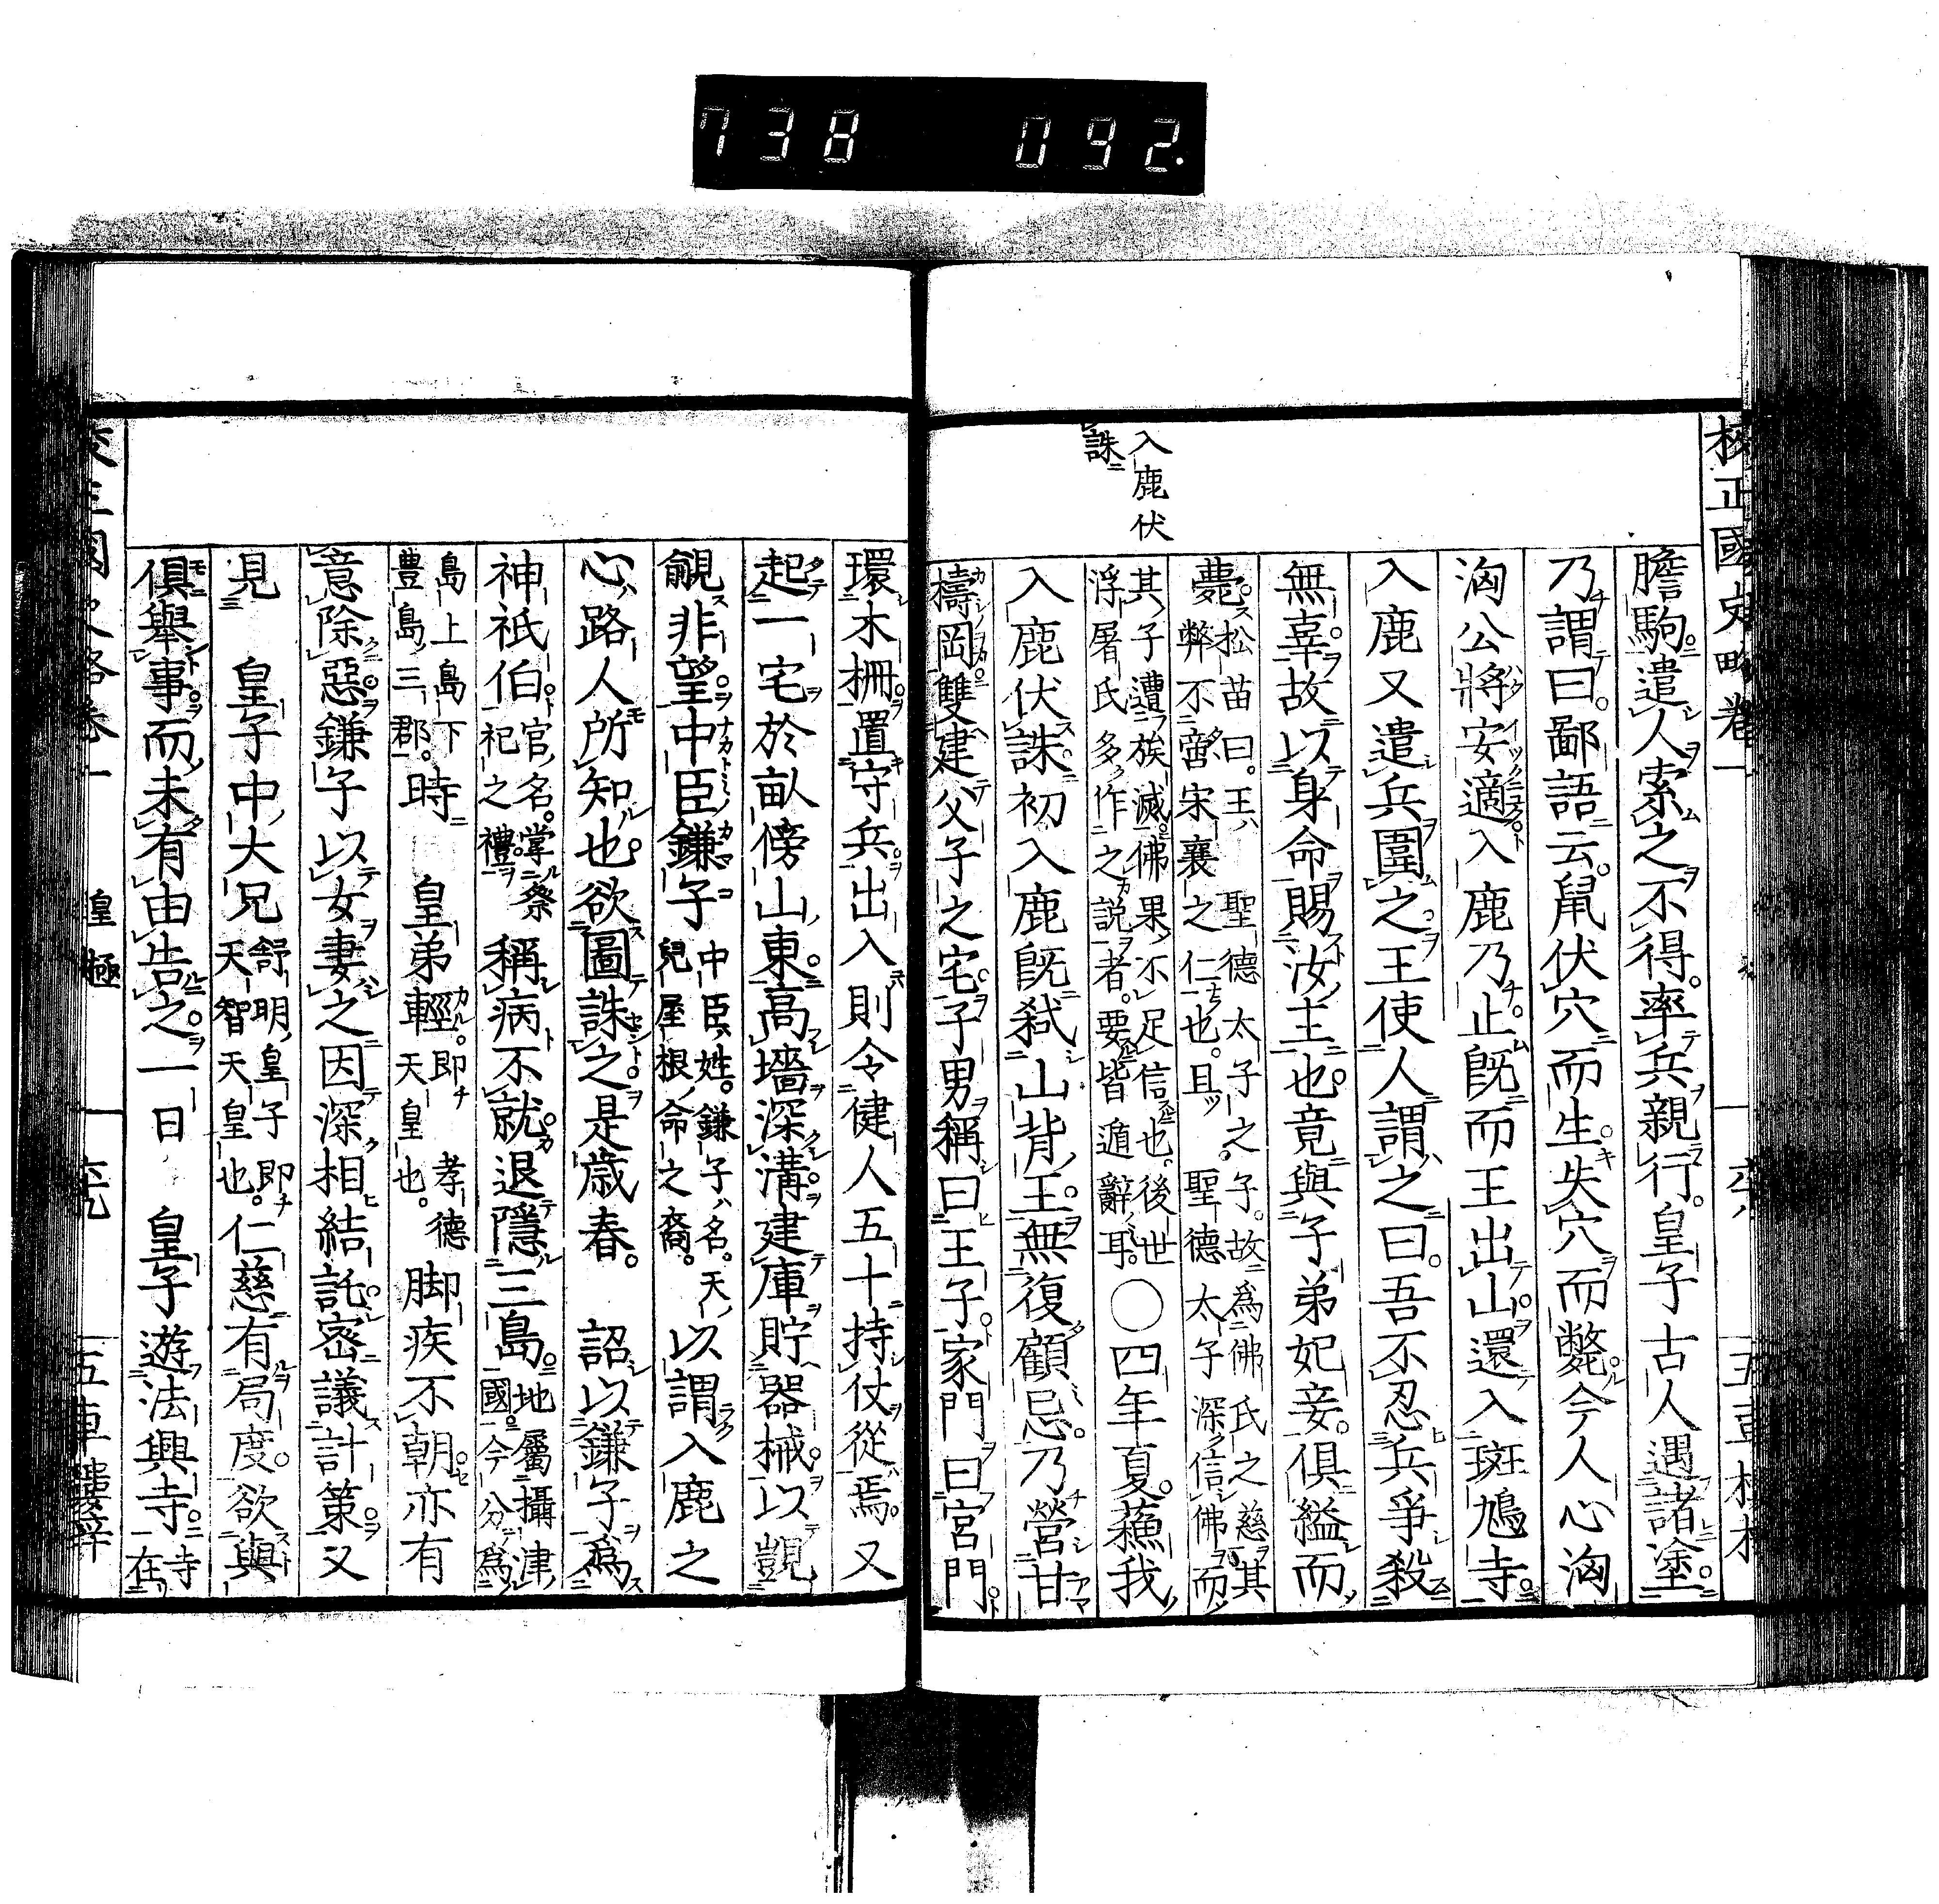 738 092
校正國史略卷一
膽駒遣人索之不得率兵親行皇子古人遇諸塗
乃謂曰鄙語云鼠伏穴而生失穴而斃今人心洶
洶公將安適入鹿乃止既而王出山還入斑鳩寺
入鹿又遣兵圍之王使人謂之曰吾不忍兵爭殺
無辜故以身命賜汝主也竟與子弟妃妾俱縊而
薨松苗曰王聖德太子之子故為佛氏之慈其
弊不啻宋襄之仁也且聖德太子深信佛而
其子遭族滅佛果不足信也後世
浮屠氏多作之說者要皆遁辭耳〇四年夏蘓我
入鹿伏誅
入鹿伏誅初入鹿既弑山背王無復顧忌乃營甘
檮岡雙建父子之宅子男稱曰王子家門曰宮門
環木柵置守兵出入則令健人五十持仗從焉又
起一宅於畝傍山東高墻深溝建庫貯器械以覬
覦非望中臣鎌子中臣姓鎌子名天兒屋根命之裔以謂入鹿之
心路人所知也欲圖誅之是歳春詔以鎌子爲
神祇伯官名掌祭祀之禮稱病不就退隱三島地屬攝津國今分爲
島上島下豊島三郡時皇弟輕即孝德天皇也脚疾不朝亦有
意除惡鎌子以女妻之因深相結託密議計策又
見皇子中大兄舒明皇子即天智天皇也仁慈有局度欲與
俱舉事而未有由告之一日皇子遊法興寺寺在
皇極